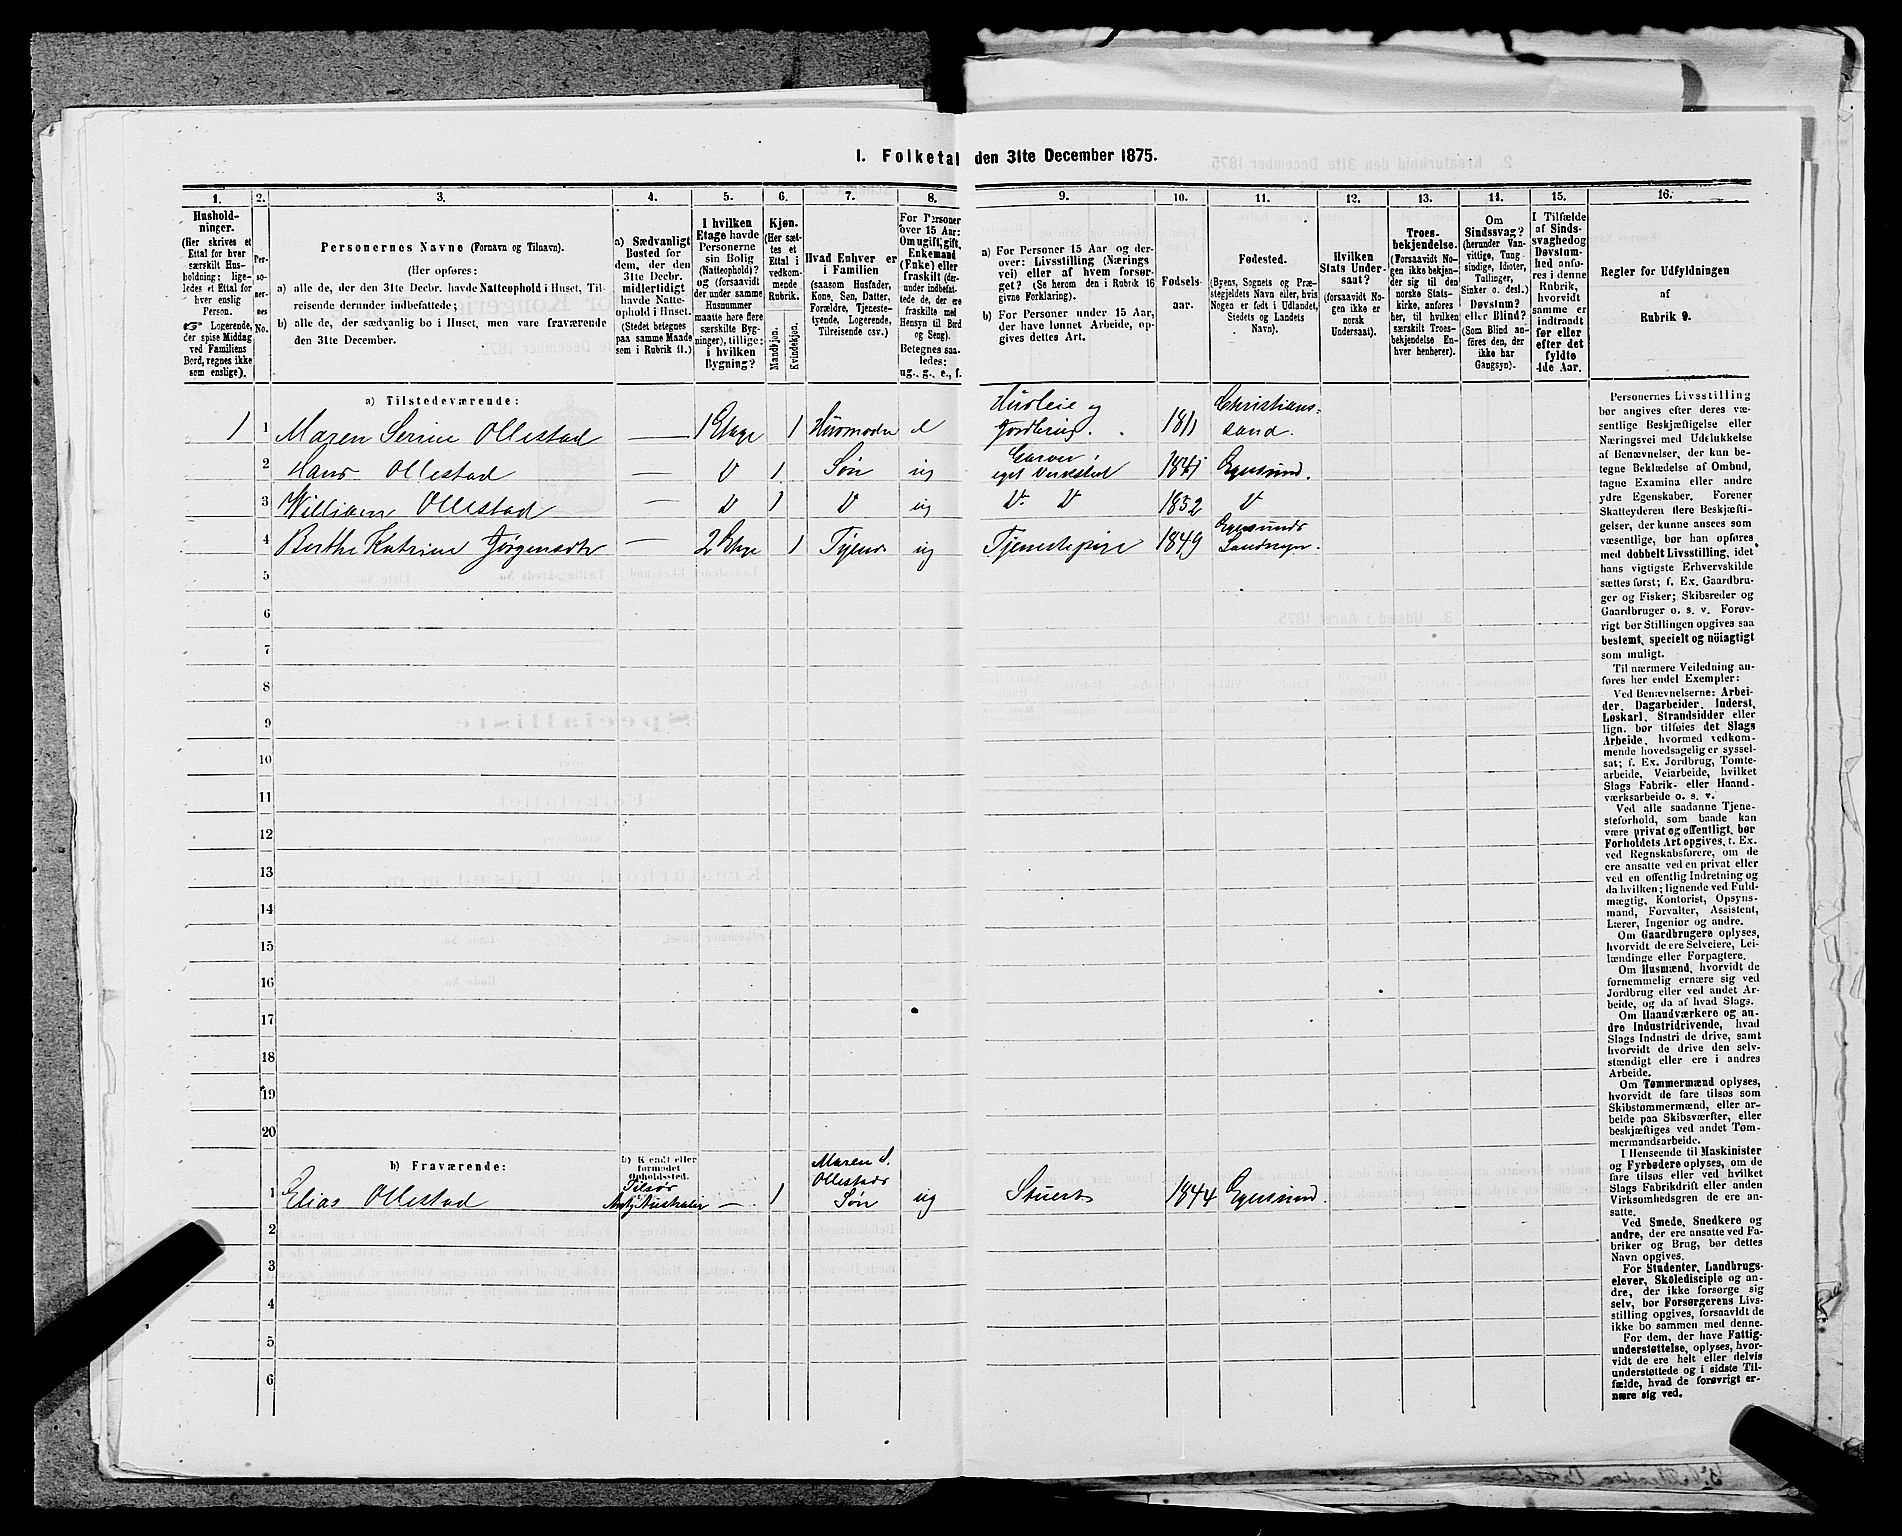 1. Folketal den 31te December 1875.
1. 2. 3. 4. 5. 6. 7. 8. 9. 10. 11. 12. 13. 14. 15. 16.
Hushold-
ninger.
(Her skrives et
Ettal for hver
særskilt Hus-
holdning; lige-
ledes et Ettal for
hver enslig
Person.
☞ Logerende,
der spise Middag
ved Familiens
Bord, regnes ikke
som enslige).
Per-
so-
ner-
nes
No.
Personernes Navne (Fornavn og Tilnavn).
(Her opføres:
a) alle de, der den 31te Decbr. havde Natteophold i Huset, Til-
reisende derunder indbefattede;
b) alle de, der sædvanlig bo i Huset, men vare fraværende
den 31te December.
a) Sædvanligt
Bosted for
dem, der den
31te Decbr.
midlertidigt
havde Natte-
ophold i Huset.
(Stedet betegnes
paa samme Maade
som i Rubrik 11.)
I hvilken
Etage havde
Personerne
sin Bolig
(Natteophold)?
og (forsaavidt
der under samme
Husnummer
maatte høre flere
særskilte Byg-
ninger), tillige:
i hvilken
Bygning?
Kjøn.
(Her sæt-
tes et
Ettal i
vedkom-
mende
Rubrik.
Mandkjøn.
Kvindekjøn.
Hvad Enhver er
i Familien
(saasom Husfader,
Kone, Søn, Datter,
Forældre, Tjeneste-
tyende, Logerende,
Tilreisende osv.)
For Personer
over 15 Aar:
Om ugift, gift,
Enkemand
(Enke) eller
fraskilt (der-
under indbefat-
tede de, der ere
fraskilte med
Hensyn til Bord
og Seng).
Betegnes saa-
ledes:
ug., g., e., f.
a) For Personer 15 Aar og der-
over: Livsstilling (Nærings
vei) eller af hvem forsør-
get? (Se herom den i Rubrik 16
givne Forklaring).
b) For Personer under 15 Aar,
der have lønnet Arbeide, op-
gives dettes Art.
Fødsels-
aar.
Fødested.
(Byens, Sognets og Præ-
stegjeldets Navn eller, hvis
Nogen er født i Udlandet,
Stedets og Landets
Navn).
Hvilken
Stats Under-
saat?
(forsaavidt No-
gen ikke er
norsk
Undersaat).
Troes-
bekjendelse.
(Forsaavidt No-
gen ikke bekjen-
der sig til den
norske Stats-
kirke, anføres
her, til hvilken
særskilt Troes-
bekjendelse En-
hver henhører).
Om
Sindssvag?
(herunder Van-
vittige, Tung
sindige, Idioter,
Tullinger,
Sinker o. desl.)
Døvstum?
eller Blind?
(Som Blind an-
føres den, der
ikke har
Gangsyn).
I Tilfælde
af Sinds-
svaghed og
Døvstum-
hed anfø-
res i denne
Rubrik,
hvorvidt
samme er
indtraadt
før eller
efter det
fyldte
4de Aar.
Regler for Udfyldningen
af
Rubrik 9.
a) Tilstedeværende:
1 1 Maren Serine Ollestad — 1 Etage 1 Husmoder e Husleie og Jordbrug. 1811 Christians-sand.
2 Hans Ollestad — D 1 Søn ug Garver, eget Verksted 1841 Egersund.
3 William Ollestad — D 1 D ug D. D 1852 D
4 Berthe Katrine Jørgensdtr — 2 Etage 1 Tjenes ug Tjenestepige 1849 Egersunds Landsogn.
5
6
7
8
9
10
11
12
13
14
15
16
17
18
19
20
b) Fraværende:
b) Kendt eller
formodet
Opholdssted.
1 Elias Ollestad Tilsøs Australien — 1 Maren S. Ollestads Søn ug Stuert 1844 Egersund.
2
3
4
5
6
Personernes Livsstilling
bør angives efter deres væ-
sentlige Beskjæftigelse eller
Næringsvei med Udelukkelse
af Benævnelser, der kun be-
tegne Beklædelse af Ombud,
tagne Examina eller andre
ydre Egenskaber. Forener
Skatteyderen flere Beskjæfti-
gelser, der kunne ansees som
væsentlige, bør han opføres
med dobbelt Livsstilling, idet
hans vigtigste Erhvervskilde
sættes først; f. Ex. Gaardbru-
ger og Fisker; Skibsreder og
Gaardbruger o. s. v. Forøv-
rigt bør Stillingen opgives saa
bestemt, specielt og nöiagtigt
som muligt.
Til nærmere Veiledning an-
føres her endel Exempler:
Ved Benævnelserne: Arbei-
der, Dagarbeider, Inderst,
Løskarl, Strandsidder eller
lign. bør tilføies det Slags
Arbeide, hvormed vedkom-
mende hovedsagelig er syssel-
sat; f. Ex. Jordbrug, Tomte-
arbeide, Veiarbeide, hvilket
Slags Fabrik- eller Haand-
værksarbeide o. s. v.
Ved alle saadanne Tjene-
steforhold, som baade kan
være privat og offentligt, bør
Forholdets Art opgives, t. Ex.
ved Regnskabsførere, om de
ere ansatte ved en privat eller
ved en offentlig Indretning og
da hvilken; lignende ved Fuld-
mægtig, Kontorist, Opsyns-
mand, Forvalter, Assistent,
Lærer, Ingeniør og andre.
Om Gaardbrugere oplyses,
hvorvidt de ere Selveiere, Lei-
lændinge eller Forpagtere.
Om Husmænd, hvorvidt de
fornemmelig ernære sig ved
Jordbrug eller ved andet Ar-
beide, og da af hvad Slags.
Om Haandværkere og an-
dre Industridrivende, hvad
Slags Industri de drive, samt
hvorvidt de drive den selv-
stændigt eller ere i andres
Arbeide.
Om Tømmermænd oplyses,
hvorvidt de fare tilsøs som
Skibstømmermænd, eller ar-
beide paa Skibsværfter, eller
beskjæftiges ved andet Tøm-
mermandsarbeide.
I Henseende til Maskinister
og Fyrbødere oplyses, om de
fare tilsøs eller ved hvilket
Slags Fabrikdrift eller anden
Virksomhedsgren de ere an-
satte.
Ved Smede, Snedkere og
andre, der ere ansatte ved Fa-
briker og Brug, bør dettes
Navn opgives.
For Studenter, Landbrugs-
elever, Skoledisciple og an-
dre, der ikke forsørge sig
selv, bør Forsørgerens Livs-
stilling opgives, forsaavidt de
ikke bo sammen med denne.
For dem, der have Fattig-
understøttelse, oplyses, hvor-
vidt de ere helt eller delvis
understøttede og i sidste Til-
fælde, hvad de forøvrigt er-
nære sig ved.